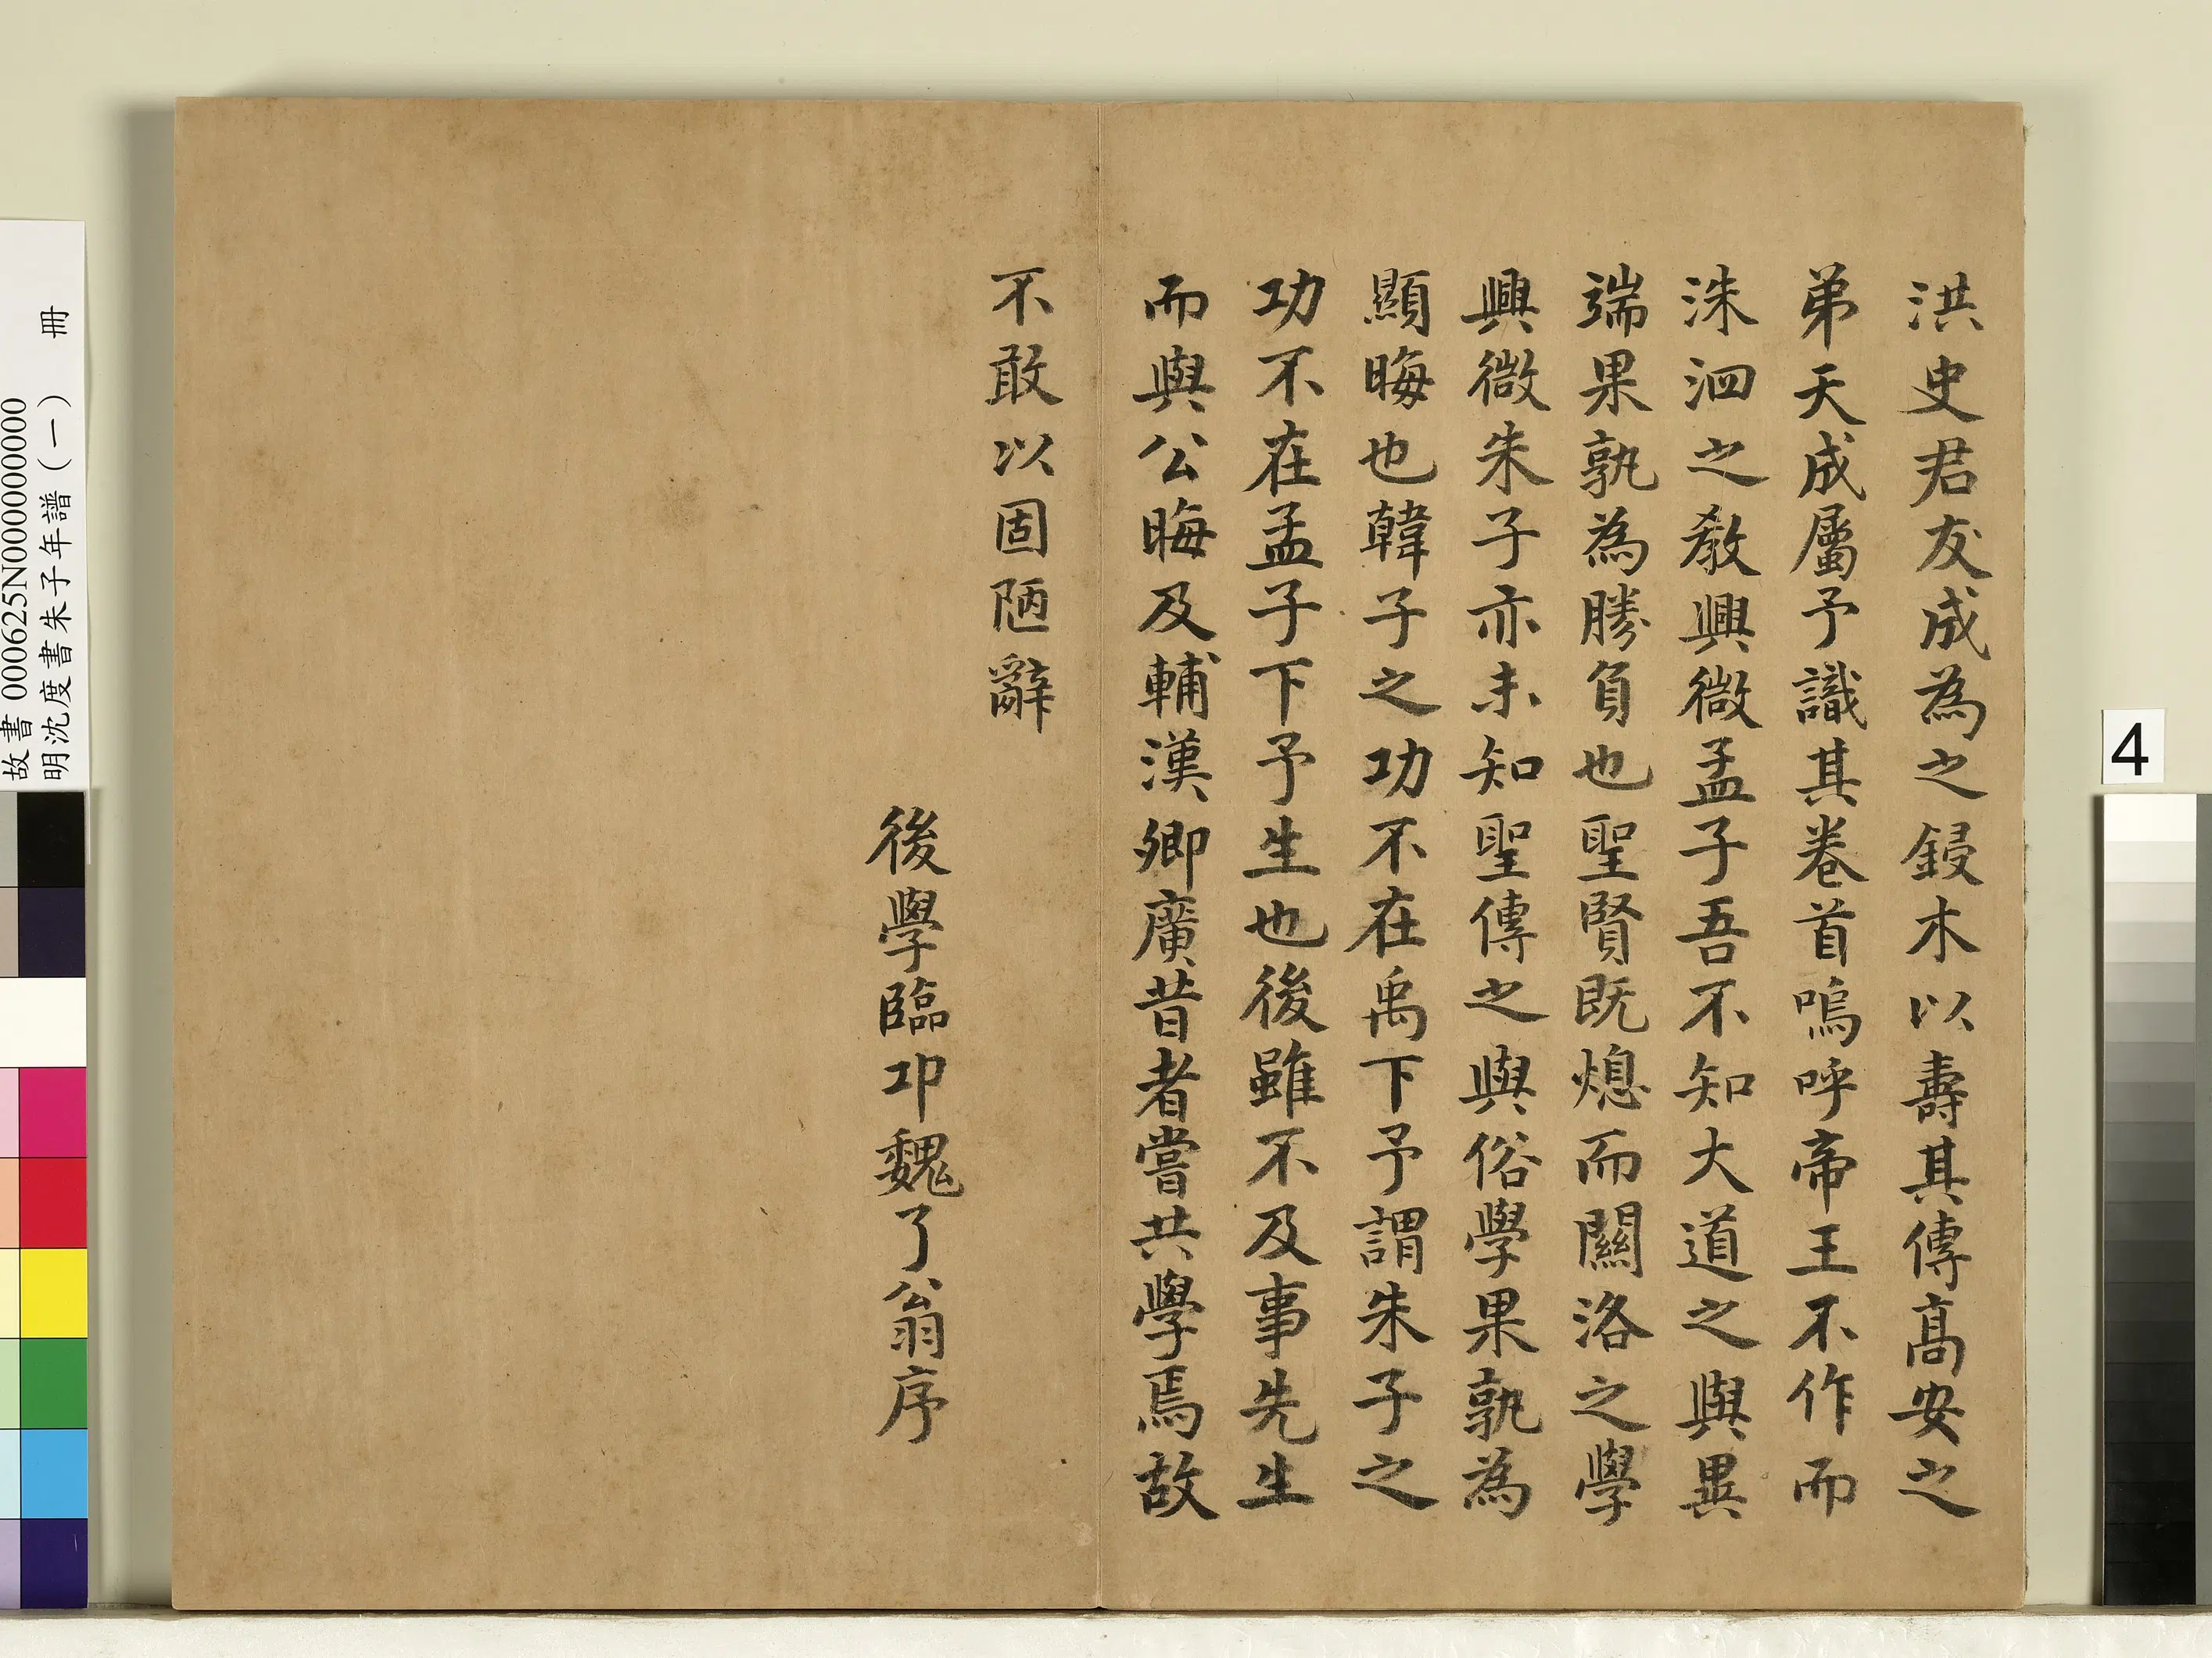 洪史君友成為之鋟木以壽其傳高安之
弟天成屬予識其卷首嗚呼帝王不作而
洙泗之教興微孟子吾不知大道之與異
端果孰為勝負也聖賢既熄而關洛之學
興微朱子亦未知聖傳之與俗學果孰為
顯晦也韓子之功不在禹下予謂朱子之
功不在孟子下予生也後雖不及事先生
而與公晦及輔漢卿廣昔者嘗共學焉故
不敢以固陋辭
後學臨卭魏了翁序
故書 000625N000000000
明沈度書朱子年譜（一） 冊
4